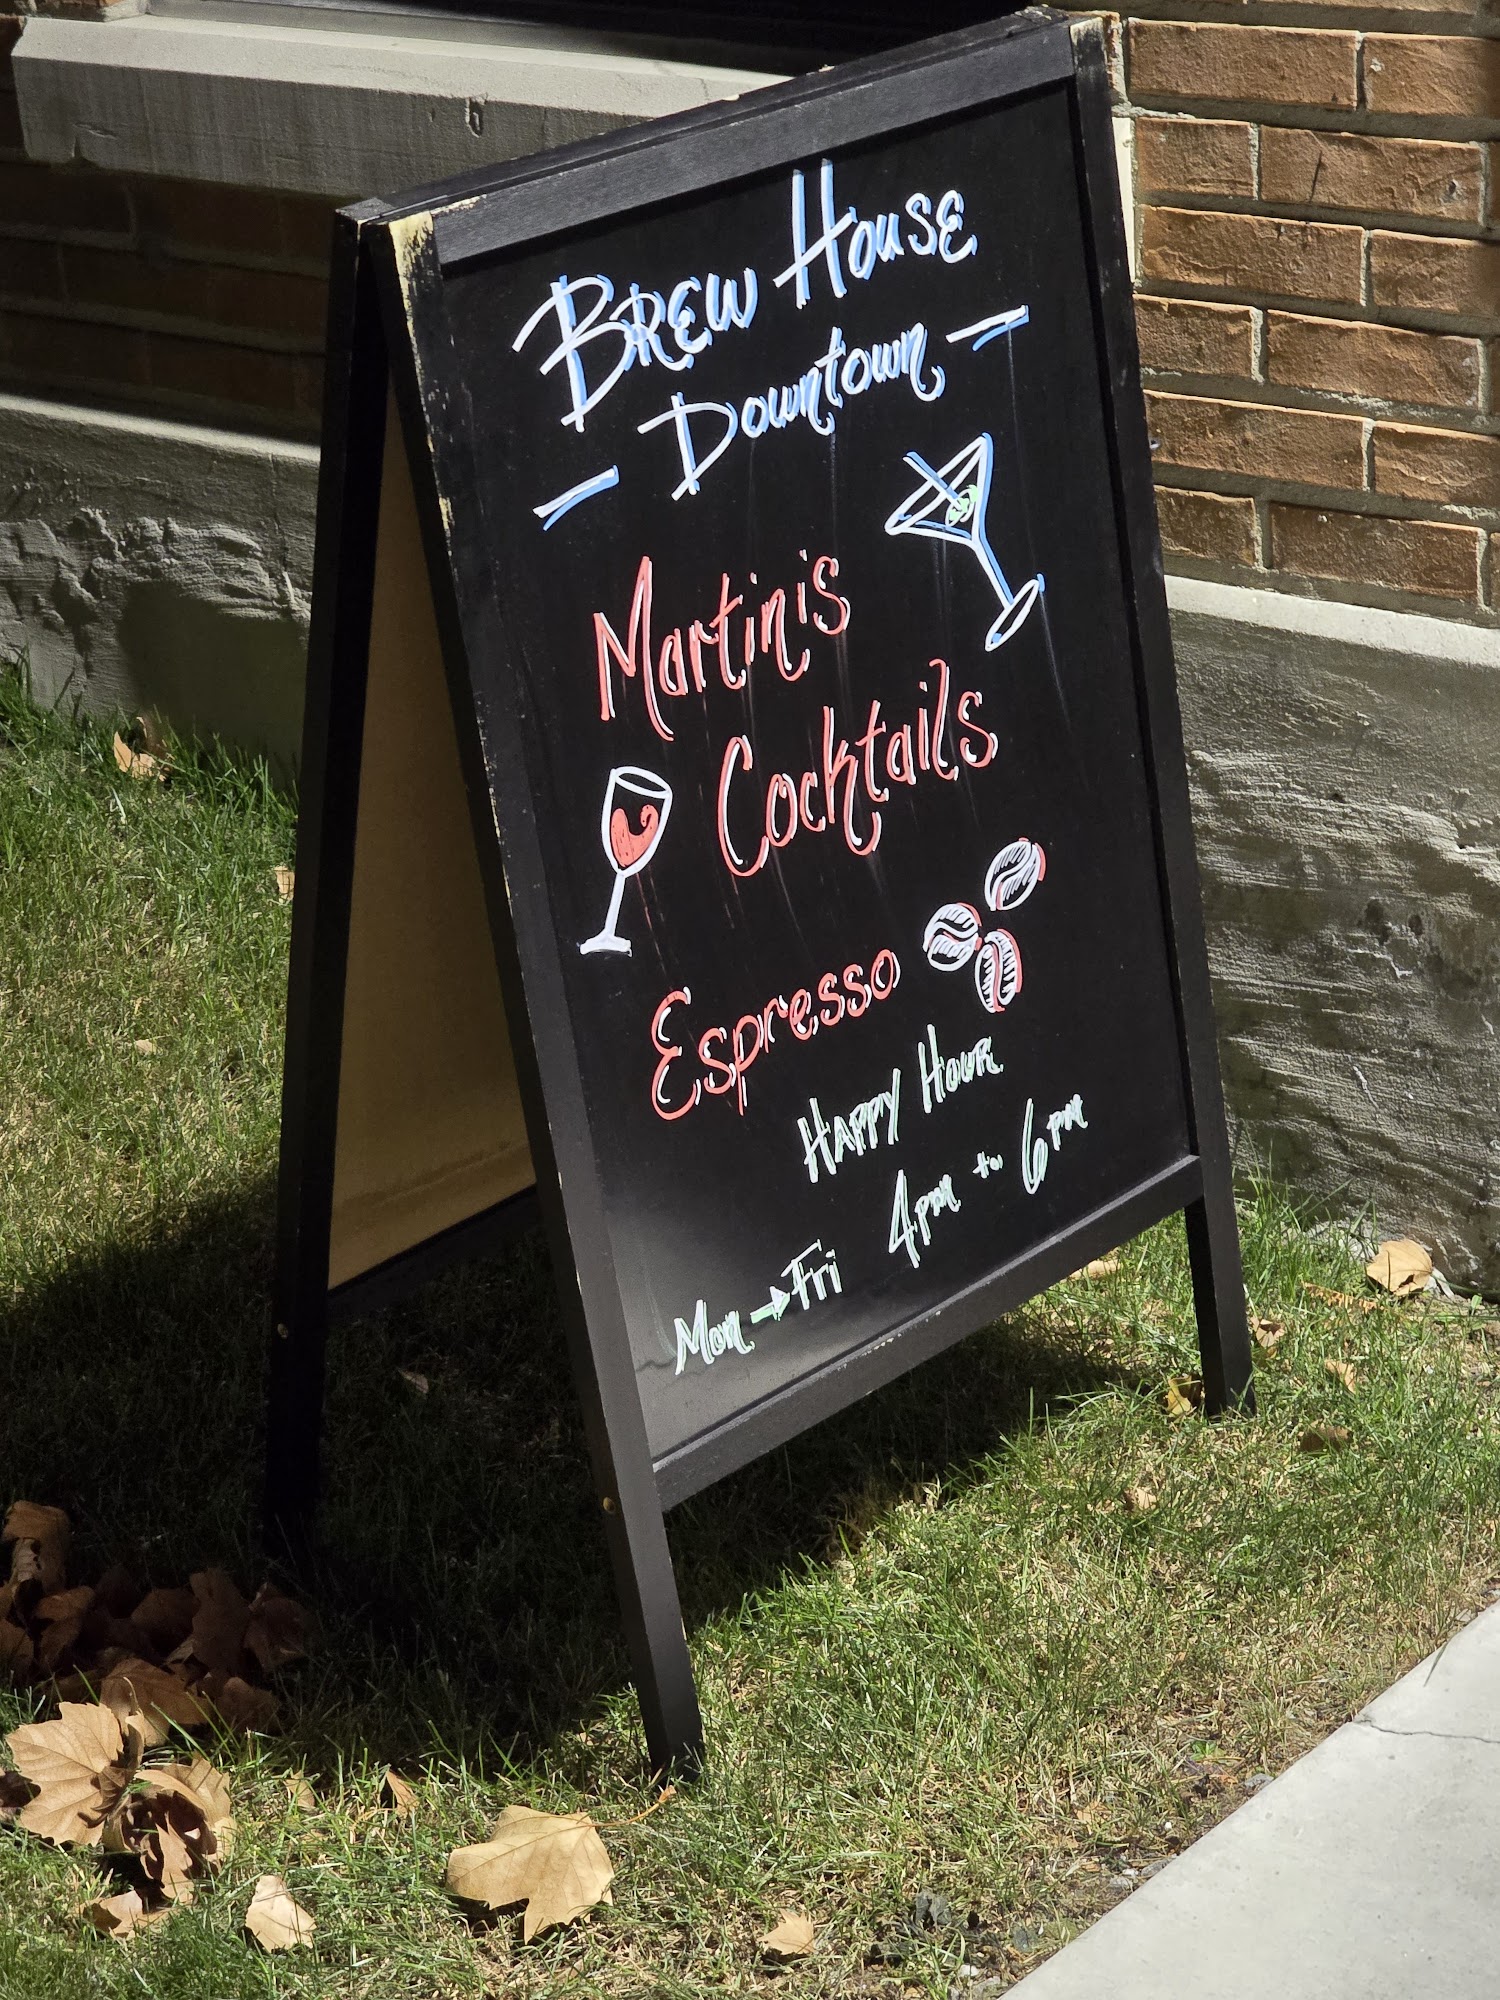 Brew House
- Downtown -
Martinis
Cocktails
Espresso
Happy Hour
Mon → Fri 4pm to 6pm